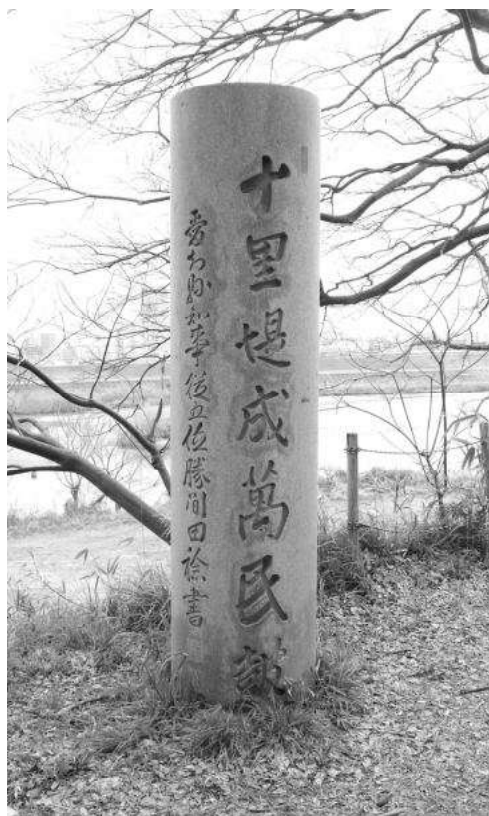 十里堤成萬民
愛知縣知事従五位勝間田稔書